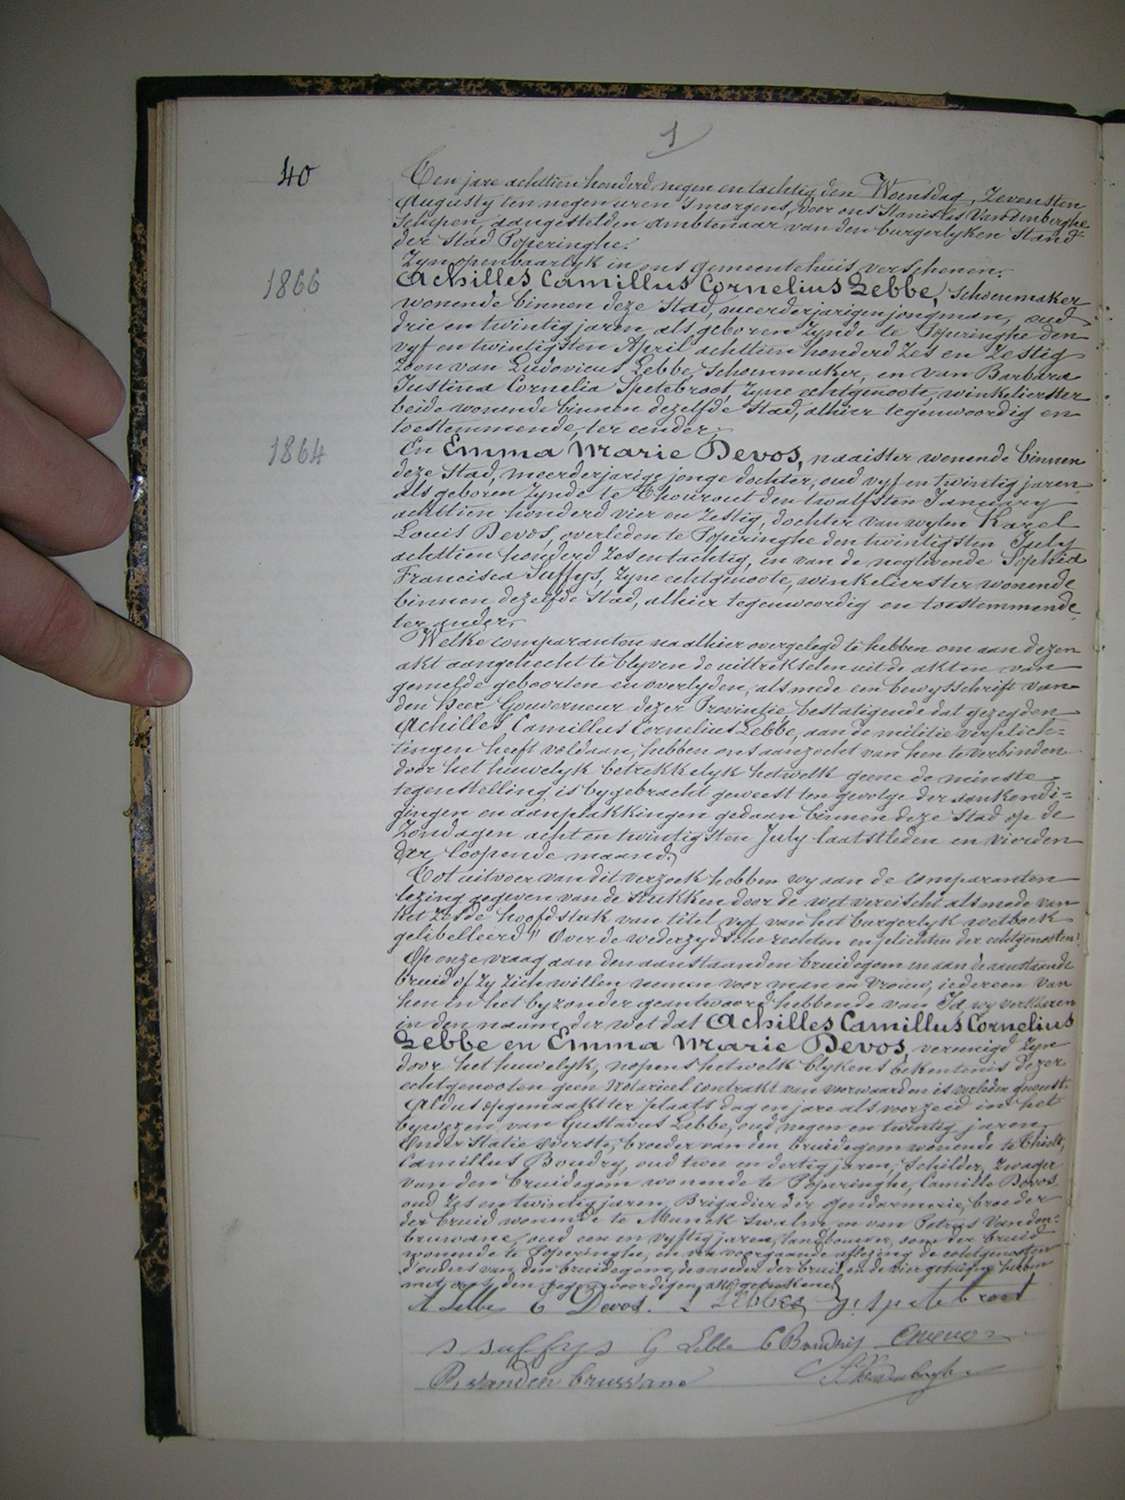 1
40
Ten jare achttien honderd negen en tachtig den Woensdag, Zevensten
Augusty ten negen uren 's morgens, voor ons Stanislas Vandenberghe
Schepen, aangestelden ambtenaar van den burgerlyken Stand
der Stad Poperinghe.
Zyn openbaarlyk in ons gemeentehuis verschenen.
1866
Achilles, Camillus Cornelius Lebbe, Schoenmaker
wonende binnen deze Stad, meerderjarigen jongman, oud
drie en twintig jaren, als geboren zynde te Poperinghe den
vyf en twintigsten April achttien honderd zes en zestig
Zoon van Ludovicus Lebbe, Schoenmaker, en van Barbara
Justina Cornelia Spetebroot, zyne echtgenoote, winkelierster
beide wonende binnen dezelfde Stad, alhier tegenwoordig en
toestemmende, ter eender;
1864
En Emma Marie Devos, naaister wonende binnen
deze Stad, meerderjarige jonge dochter, oud vyf en twintig jaren
als geboren zynde te Thourout den twalfsten January
achttien honderd vier en zestig, dochter van wylen Karel
Louis Devos, overleden te Poperinghe den twintigsten July
achttien honderd zes en tachtig, en van de noglevende Sophia
Francisca Suffys, zyne echtgenoote, winkelierster wonende
binnen dezelfde Stad, alhier tegenwoordig en toestemmende
ter ander.
Welke comparanten na alhier overgelegd te hebben om aan dezen
akt aangehecht te blyven de uittreksels uit de akten van
gemelde geboorten en overlyden, als mede een bewysschrift van
den Heer Gouverneur dezer Provintie, bestatigende dat gezegden
Achilles, Camillus Cornelius Lebbe, aan de militie verplich=
tingen heeft voldaan, hebben ons aanzocht van hen te verbinden
door het huwelyk betrekkelyk hetwelk geene de minste
tegenstelling is bygebracht geweest ten gevolge der aankondi=
gingen en aanplakkingen gedaan binnen deze Stad op de
Zondagen acht en twintigsten July laatstleden en vierden
der loopende maand.
Tot uitvoer van dit verzoek hebben wy aan de comparanten
lezing gegeven van de stukken door de wet vereischt als mede van
het zesde hoofdstuk van titel vyf van het burgerlyk wetboek
gelibelleerd "Over de wederzydsche rechten en plichten der echtgenooten"
Op onze vraag aan den aanstaanden bruidegom en aan de aanstaande
bruid of zy zich willen nemen voor man en vrouw, iedereen van
hen in het byzonder geantwoord hebbende van Ja, wy verklaren
in den naam der wet dat Achilles Camillus Cornelius
Lebbe en Emma Marie Devos, vereenigd zyn
door het huwelyk, nopens hetwelk blykens bekentenis dezer
echtgenooten geen Notarieel contrakt van voorwaarden is verleden geweest.
Aldus opgemaakt ter plaats dag en jare als voorzeid in het
bywezen van Gustavus Lebbe, oud negen en twintig jaren,
Onder Statie overste, broeder van den bruidegom wonende te Thielt,
Camillus Boudry, oud twee en dertig jaren, Schilder, Zwager
van den bruidegom wonende te Poperinghe, Camille Devos
oud zes en twintig jaren, Brigadier der gendarmerie, broeder
der bruid wonende te Munck Swalm en van Petrus Vanden=
bruwane, oud een en vyftig jaren, landbouwer, oom der bruid
wonende te Poperinghe, en na voorgaande aflezing de echtgenooten
d'ouders van den bruidegom, de moeder der bruid en de vier getuigen hebben
met ons den tegenwoordigen akt geteekend
A Lebbe E Devos. L Lebbe J. Spetebroot
S Suffys G Lebbe C Boudry C Devos
P. vanden brussane Vandenberghe